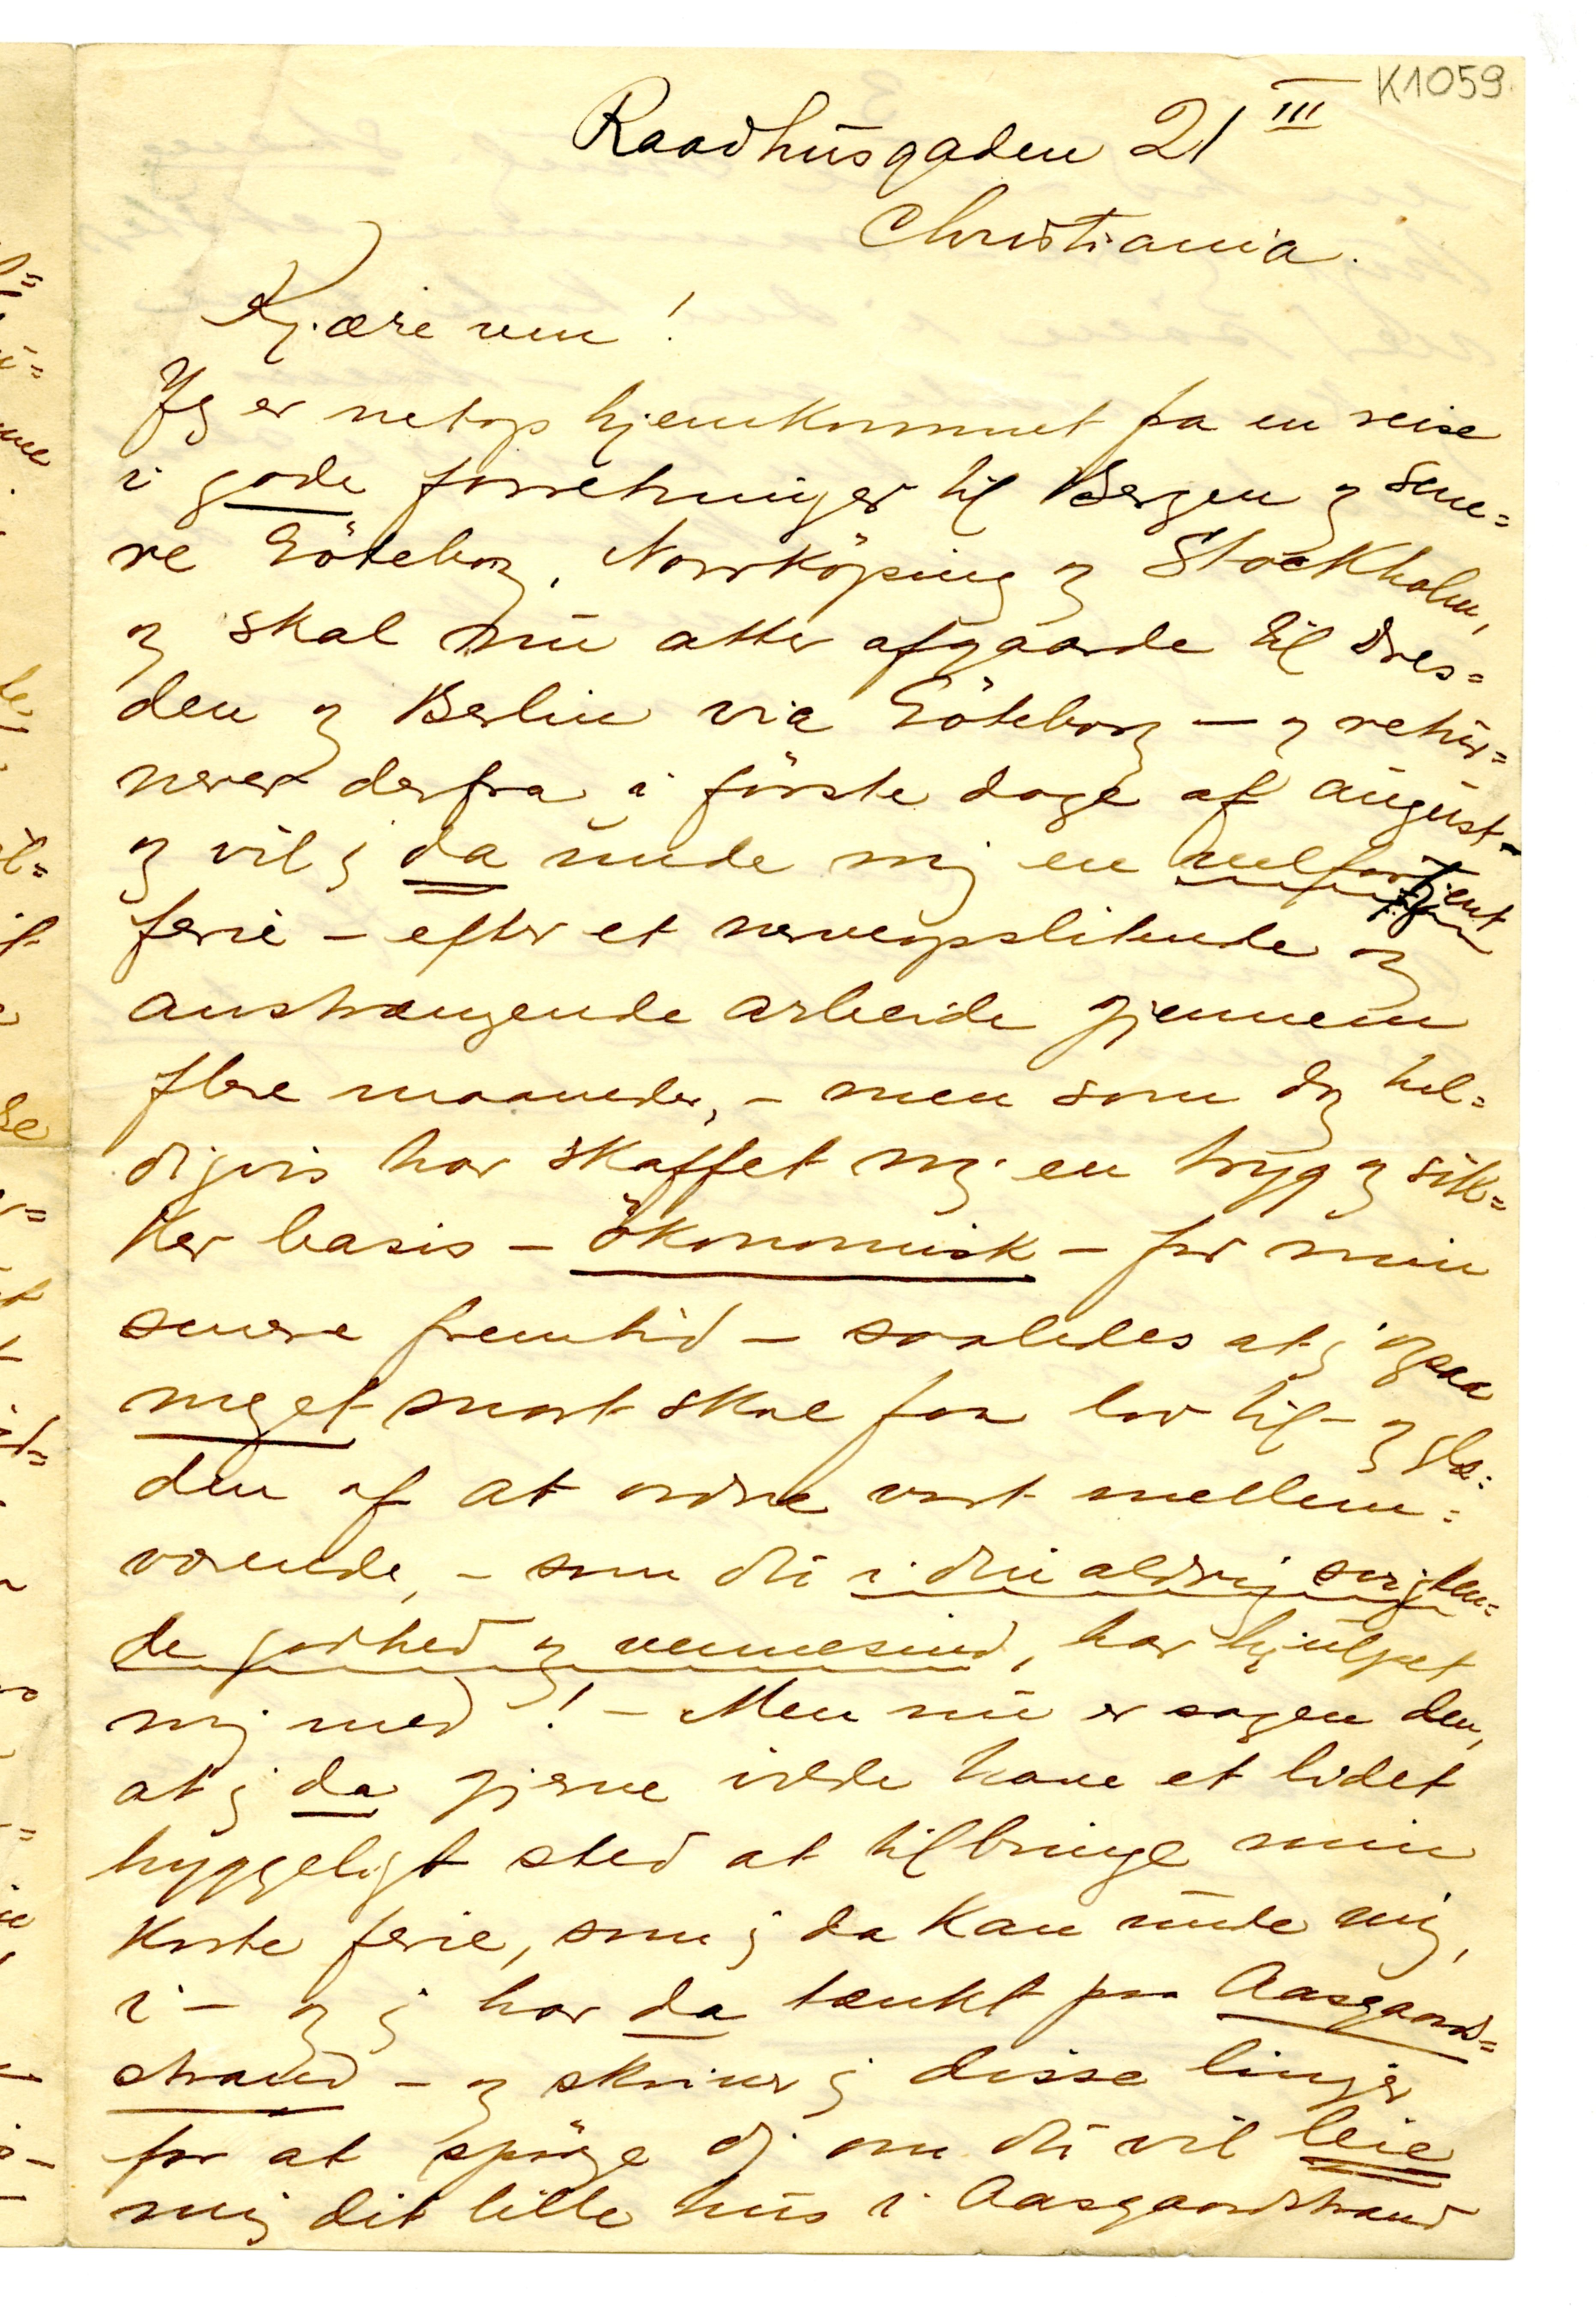 K1059.
Raadhusgaden 21 III
Christiania.
Kjære ven!
Jeg er netop hjemkommet fra en reise
i gode forretninger til Bergen og sene=
re Göteborg, Norrköping og Stockholm,
og skal nu atter afgaarde til Dres=
den og Berlin via Göteborg – og retur=
nerer derfra i förste dage af august –
og vil j da unde mig en velfortjent
ferie – efter et nerveopslitende og
anstrængende arbeide gjennem
flere maaneder, – men som dog hel=
digvis har skaffet mig en tryg og sik=
ker basis – ökonomisk – for min
senere fremtid – saaledes at j ogsaa
meget snart skal faa lov til – og glæ=
den af at ordne vort mellem=
værende, – som du i din aldrig svigten=
de godhed og vennesind, har hjulpet
mig med! – Men nu er sagen den,
at j da gjerne vilde have et lidet
hyggeligt sted at tilbringe min
korte ferie, som j da kan unde mig,
i – og j har da tænkt paa Aasgaard=
strand – og skriver j disse linjer
for at spörge dig om du vil leie
mig dit lille hus i Aasgaardstrand